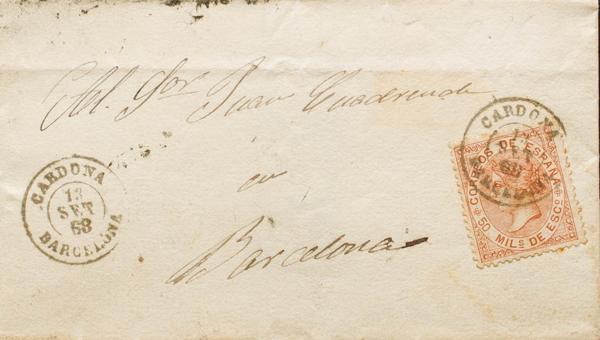 Al Sor Juan
en
Barcelona
CARDONA
13
SET
68
BARCELONA
CARDONA
13
SET
68
BARCELONA
CORREOS DE ESPAÑA
50 MILS DE ESCO